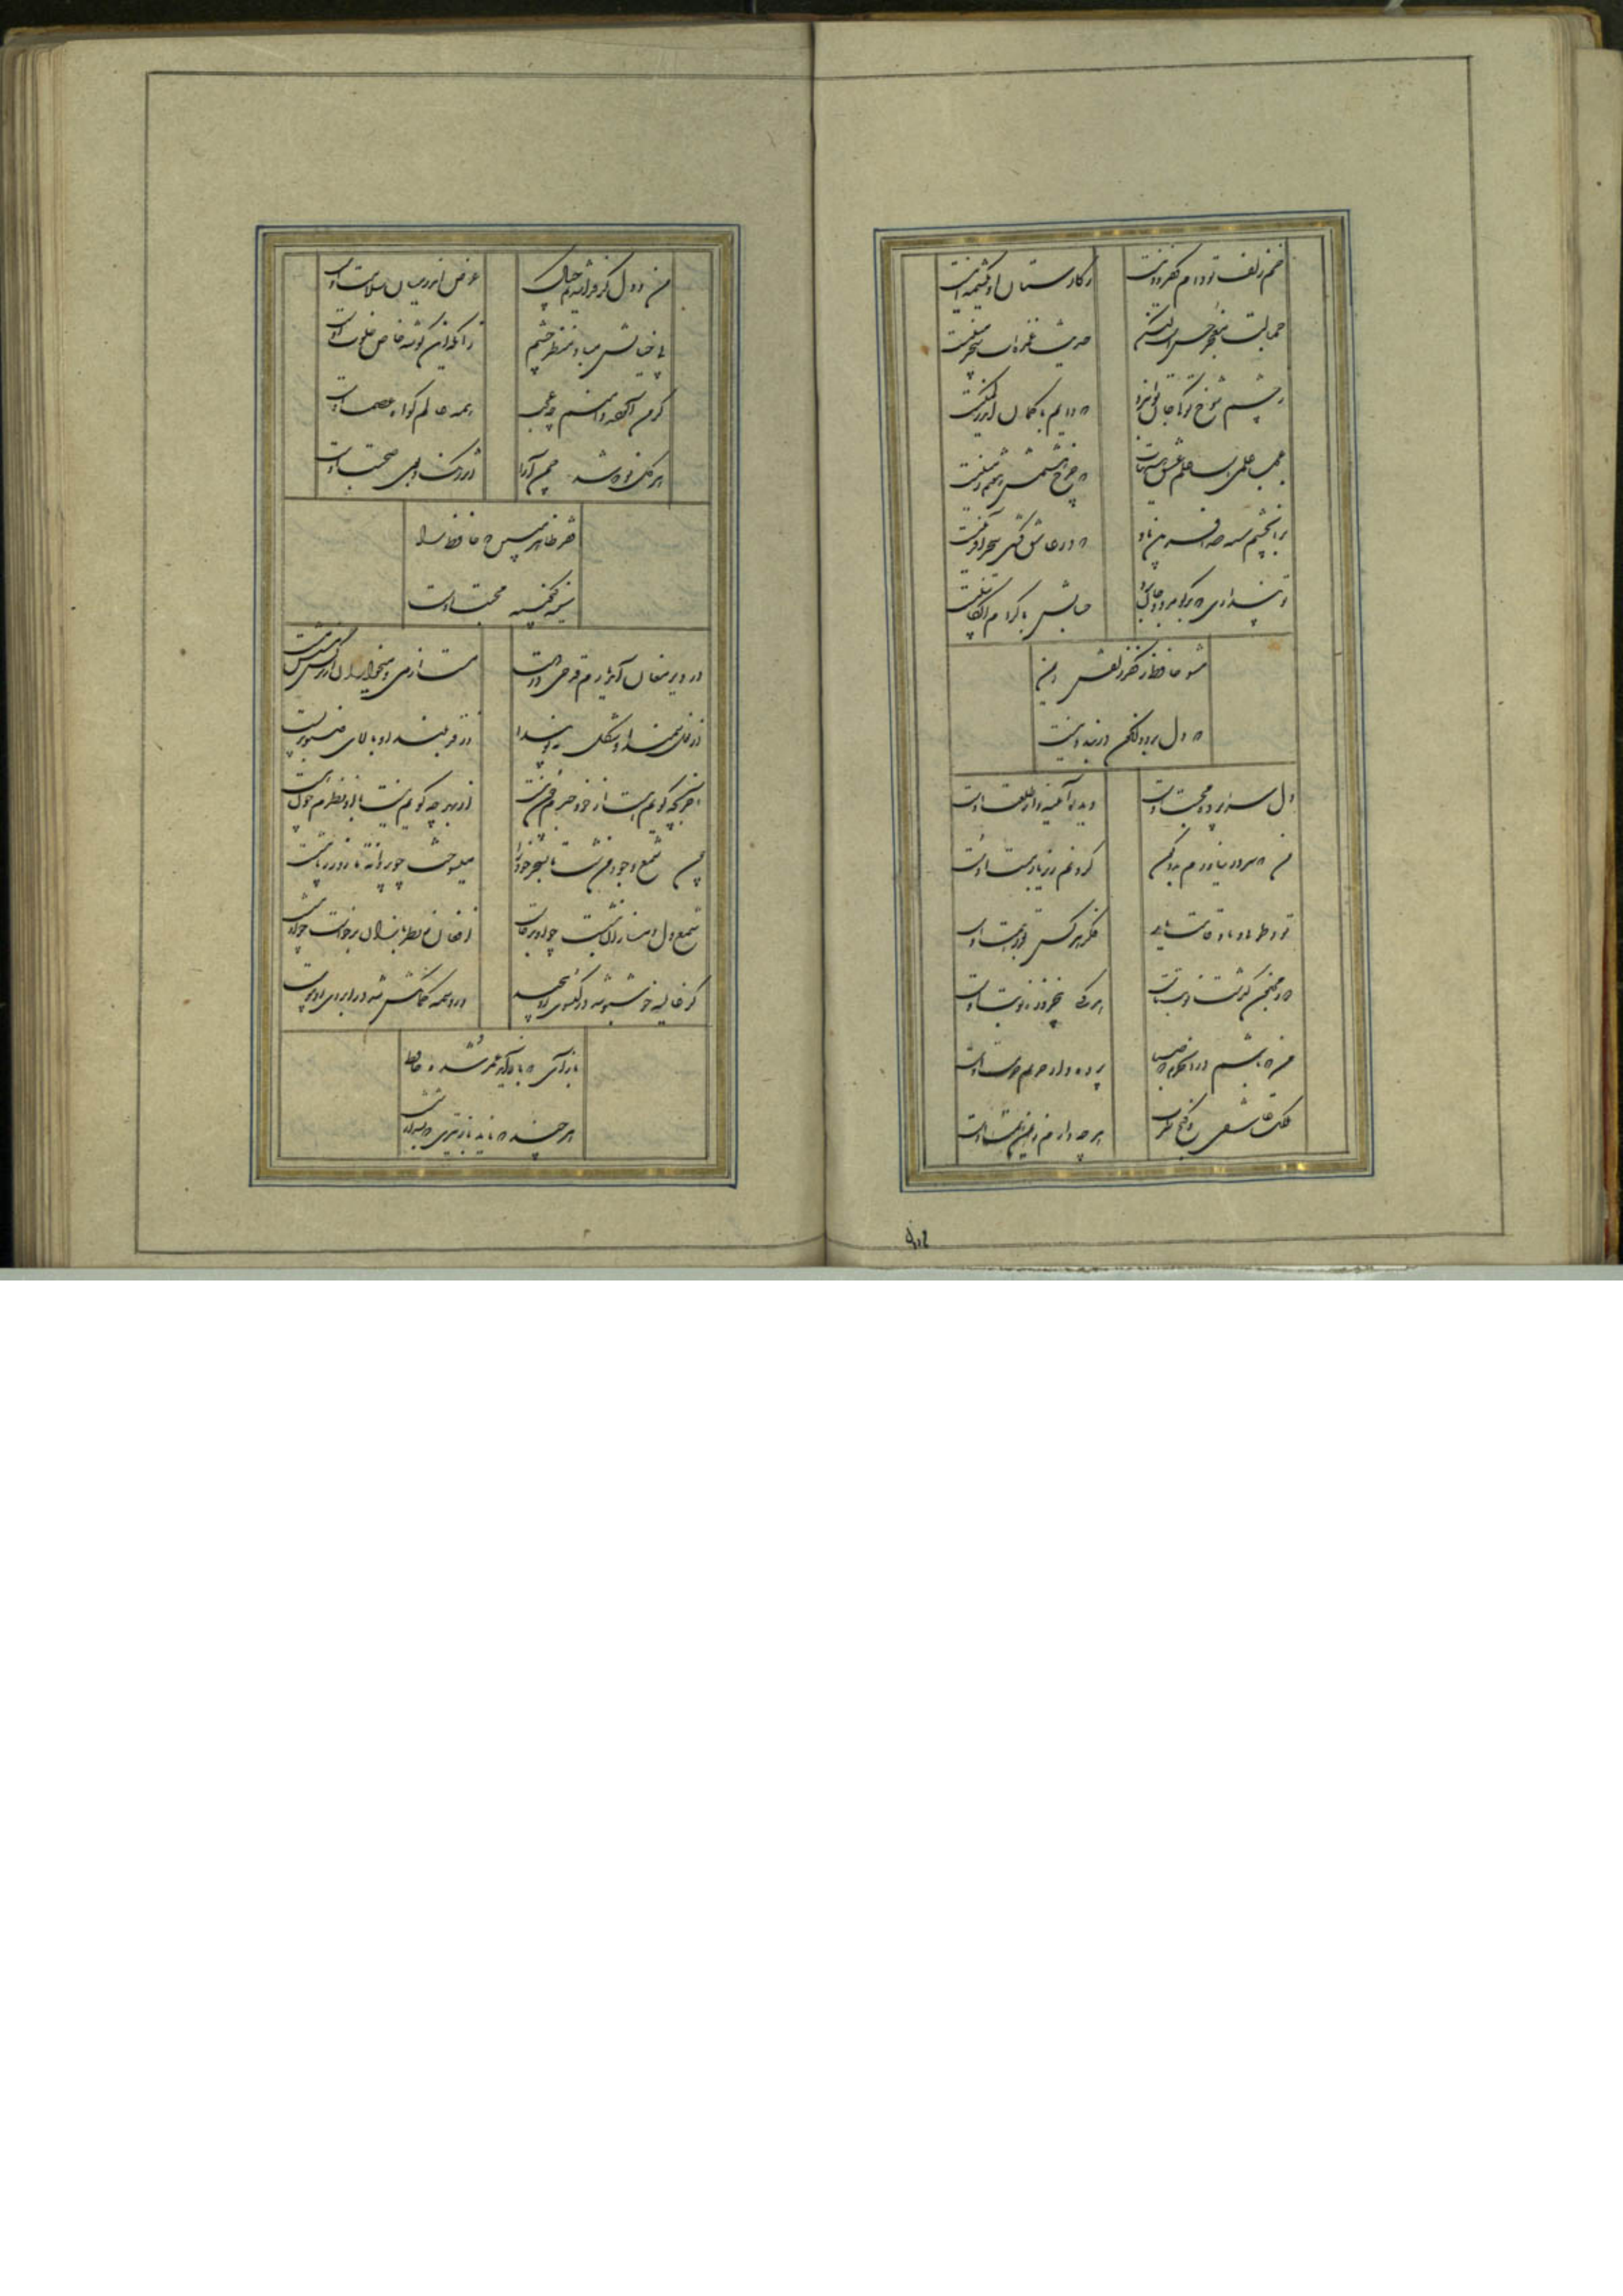 خم زلف تو دام کفر و دینست
ز کارستان او یک شمه اینست
جمالت معجز حسن است لیکن
حدیث غمزه‌ات سحر مبینست
ز چشم شوخ تو کی جان توان برد
که دایم با کمان اندر کمینست
عجب علمیست علم هیئت عشق
که چرخ هشتمش هفتم زمینست
بر آن چشم سیه صد آفرین باد
که در عاشق کشی سحرآفرینست
تو پنداری که بدگو رفت و جان برد
حسابش با کرام الکاتبینست
مشو حافظ ز کفر زلفش ایمن
که دل برد و کنون در بند دینست
دل سراپرده محبت اوست
دیده آئینه‌دار طلعت اوست
من که سر در نیاورم به دو کون
گردنم زیر بار منت اوست
تو و طوبی و ما و قامت یار
فکر هر کس بقدر همت اوست
دور مجنون گذشت و نوبت ماست
هر کسی پنج روز نوبت اوست
من که باشم در آن حرم که صبا
پرده‌دار حریم حرمت اوست
ملکت عاشقی و گنج طرب
هر چه دارم ز یمن همت اوست
من و دل گر فنا شدیم چه باک
غرض اندر میان سلامت اوست
بی خیالش مباد منظر چشم
زانکه این گوشه خاص خلوت اوست
گر من آلوده دامنم چه عجب
همه عالم گواه عصمت اوست
هر گل نو که شد چمن آرا
اثر رنگ و بوی صحبت اوست
فقر ظاهر مبین که حافظ را
سینه گنجینه محبت اوست
در دیر مغان آمد یارم قدحی در دست
مست از می و میخواران از نرگس مستش مست
از نعل سمند او شکل مه نو پیدا
وز قد بلند او بالای صنوبر پست
آخر بچه گویم هست از خود خبرم چون نیست
از بهر چه گویم نیست با او نظرم چون هست
شمع دل دمسازان بنشست چو او برخاست
افغان ز نظربازان برخاست چو او بنشست
گر غالیه خوشبو شد در گیسوی او پیچید
ور وسمه کمانکش شد در ابروی او پیوست
بازآی که بازآید عمر شده حافظ
هر چند که ناید باز تیری که بشد از شست